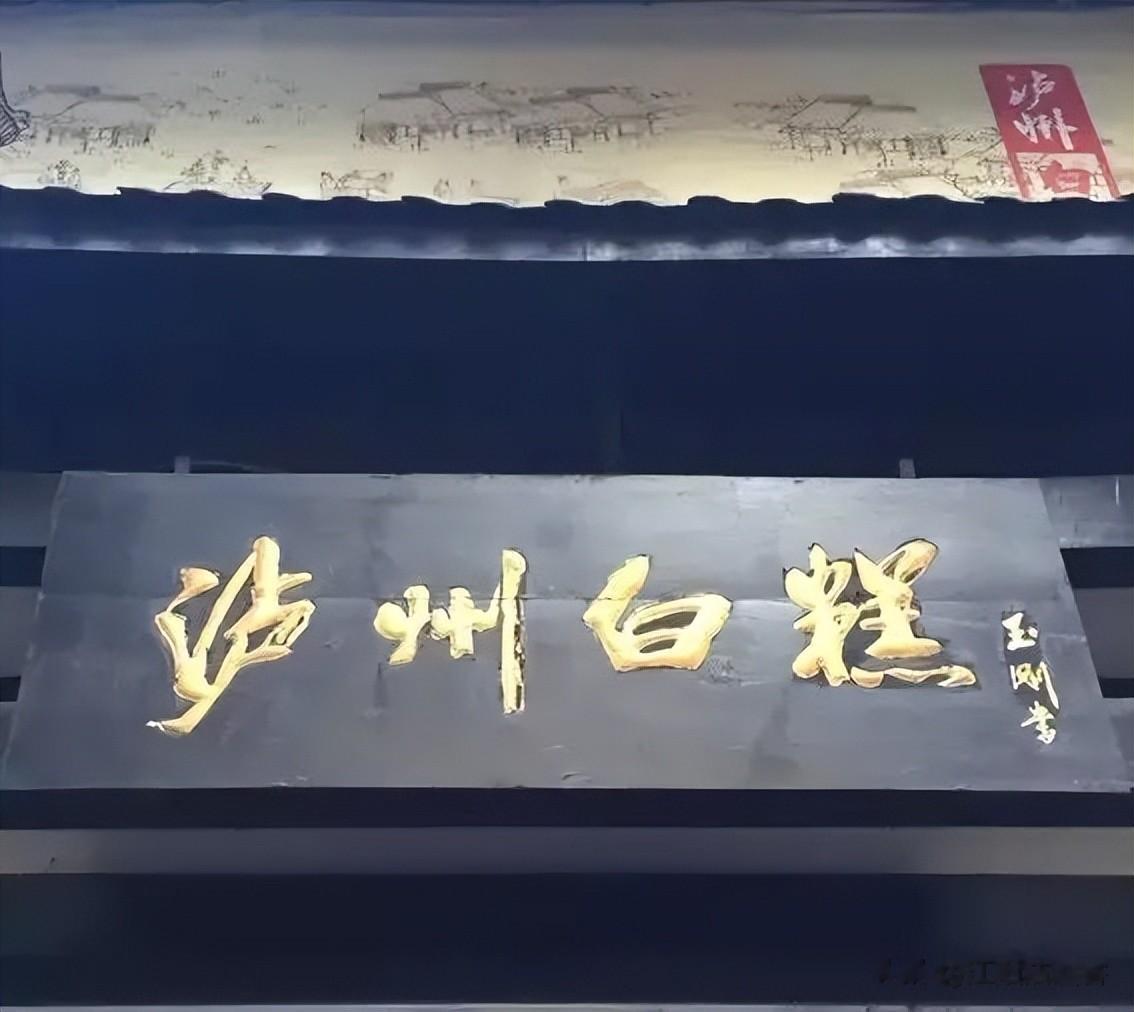 泸州
泸州白糕
玉刚书